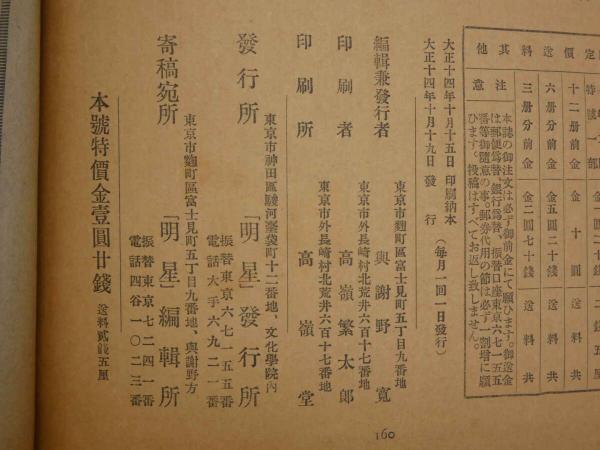 定價送料其他
特號一部
二錢五厘
十二册分前金 金十圓 送料共
六册分前金 金五圓二十錢 送料共
三册分前金 金二圓七十錢 送料共
注意
本誌の御注文は必ず御前金にて願ひます。御送金
は郵便爲替、銀行爲替、振替口座東京六七一五五
番等御隨意の事。郵券代用の節は必ず一割增に願
ひます。投稿はすべてお返し致しません。
大正十四年十月十五日 印刷納本
大正十四年十月十九日 發行
(每月一回一日發行)
東京市麴町區富士見町五丁目九番地
編輯兼發行者 與謝野寬
東京市外長崎村北荒井六百十七番地
印刷者 高嶺繁太郎
東京市外長崎村北荒井六百十七番地
印刷所 高嶺堂
東京市神田區駿河臺袋町十二番地、文化學院內
發行所 「明星」發行所
振替東京六七一五五番
電話大手六九二一番
東京市麴町區富士見町五丁目九番地、與謝野方
寄稿宛所 「明星」編輯所
振替東京七二四一番
電話四谷一〇二三番
本號特價金壹圓廿錢 送料貳錢五厘
160